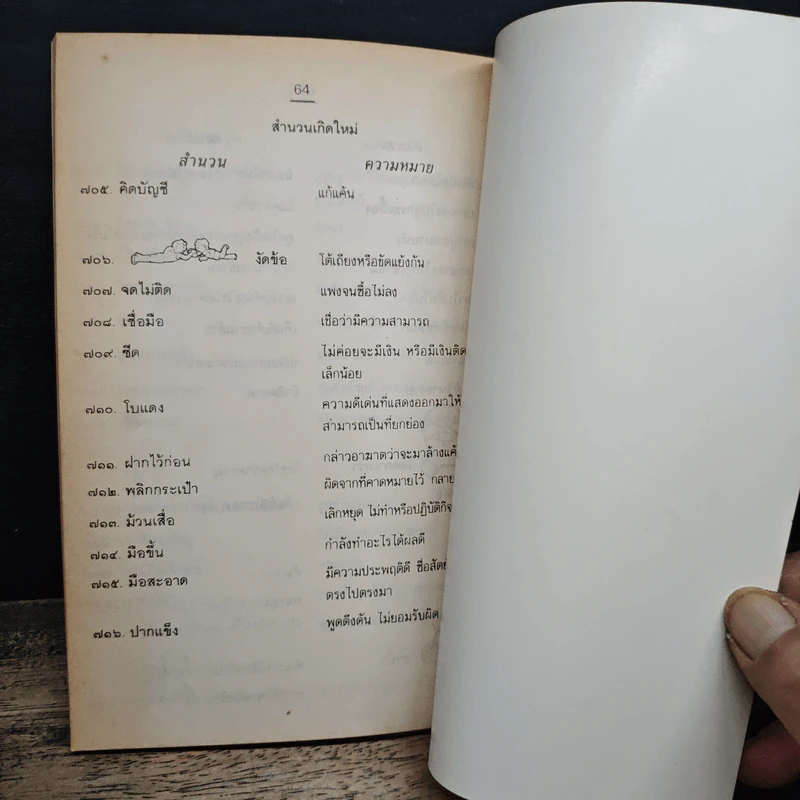 64
สำนวนเกิดใหม่
สำนวน ความหมาย
๗๐๕. คิดบัญชี แก้แค้น
๗๐๖. งัดข้อ โต้เถียงหรือขัดแย้งกัน
๗๐๗. จดไม่ติด แพงจนซื้อไม่ลง
๗๐๘. เชื่อมือ เชื่อว่ามีความสามารถ
๗๐๙. ซีด ไม่ค่อยจะมีเงิน หรือมีเงินติด
เล็กน้อย
๗๑๐. โบแดง ความดีเด่นที่แสดงออกมาให้
สามารถเป็นที่ยกย่อง
๗๑๑. ฝากไว้ก่อน กล่าวอาฆาตว่าจะมาล้างแค้
๗๑๒. พลิกกระเป๋า ผิดจากที่คาดหมายไว้ กลาย
๗๑๓. ม้วนเสื่อ เลิกหยุด ไม่ทำหรือปฏิบัติกิจ
๗๑๔. มือขึ้น กำลังทำอะไรได้ผลดี
๗๑๕. มือสะอาด มีความประพฤติดี ซื่อสัตย์
ตรงไปตรงมา
๗๑๖. ปากแข็ง พูดดึงดัน ไม่ยอมรับผิด